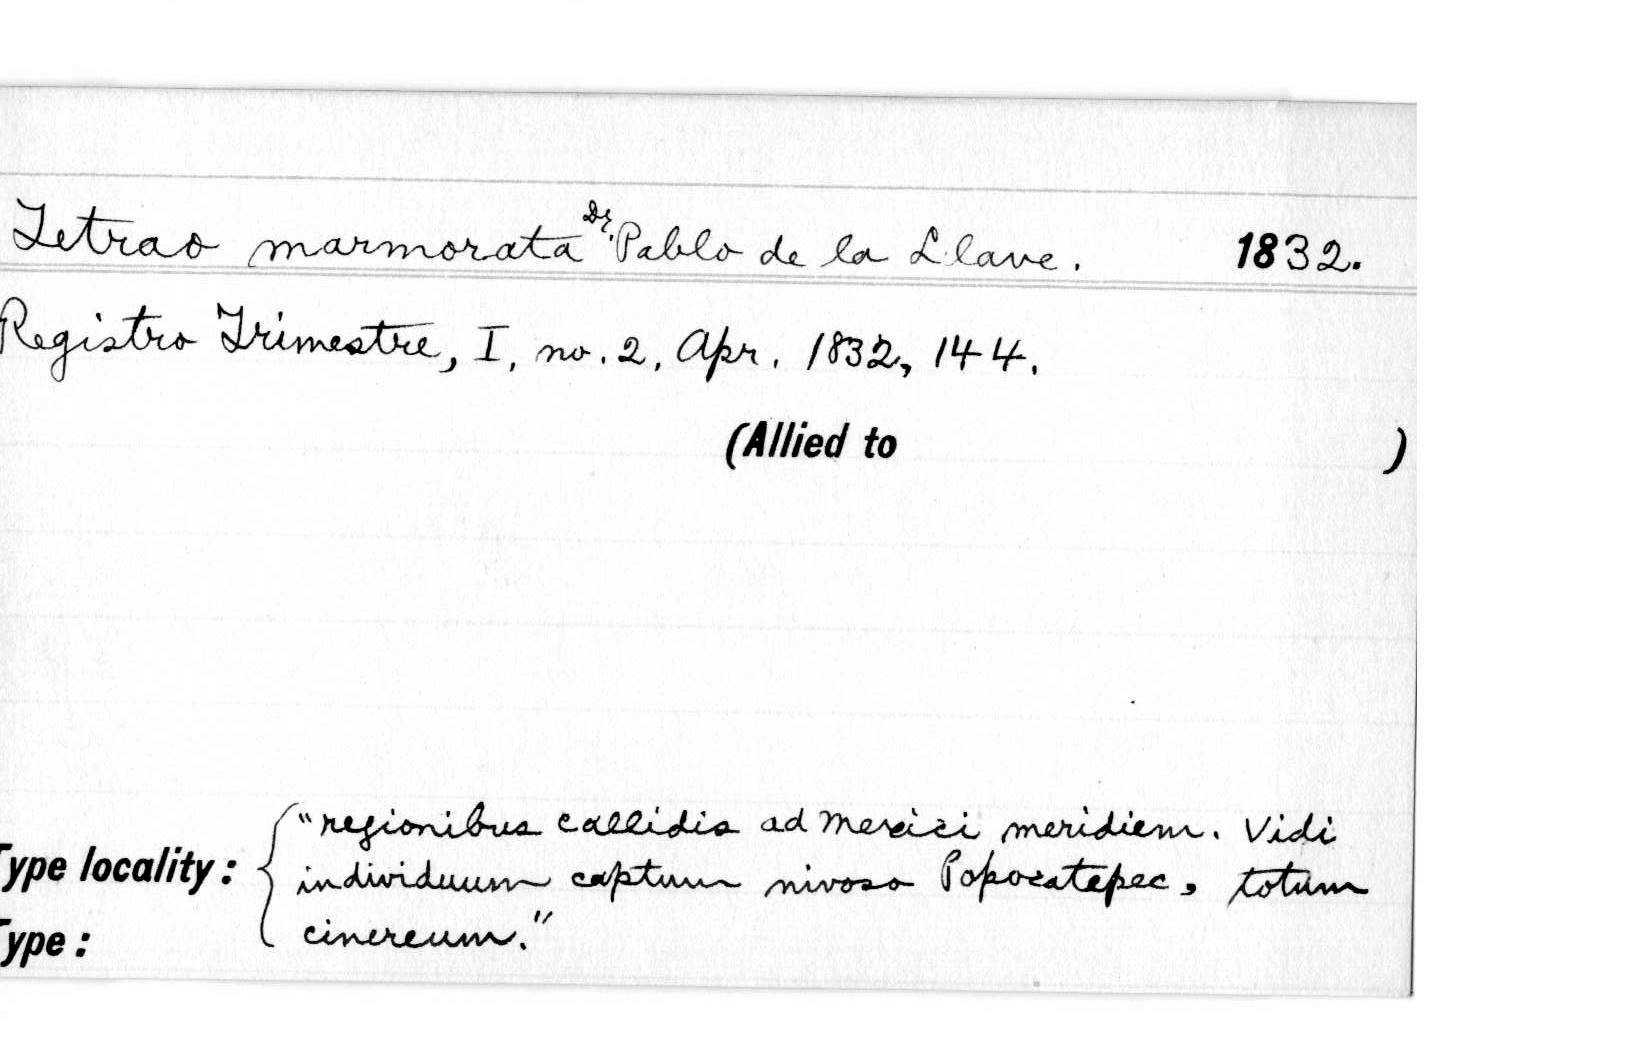 Tetrao marmorata Dr. Pablo de la Llave. 1832.
Registro Trimestre, I, no. 2, Apr. 1832, 144.
(Allied to )
"regionibus callidis ad Mexici meridiem. Vidi
Type locality: individuum captum nivoso Popocatepec, totum
Type: cinereum."